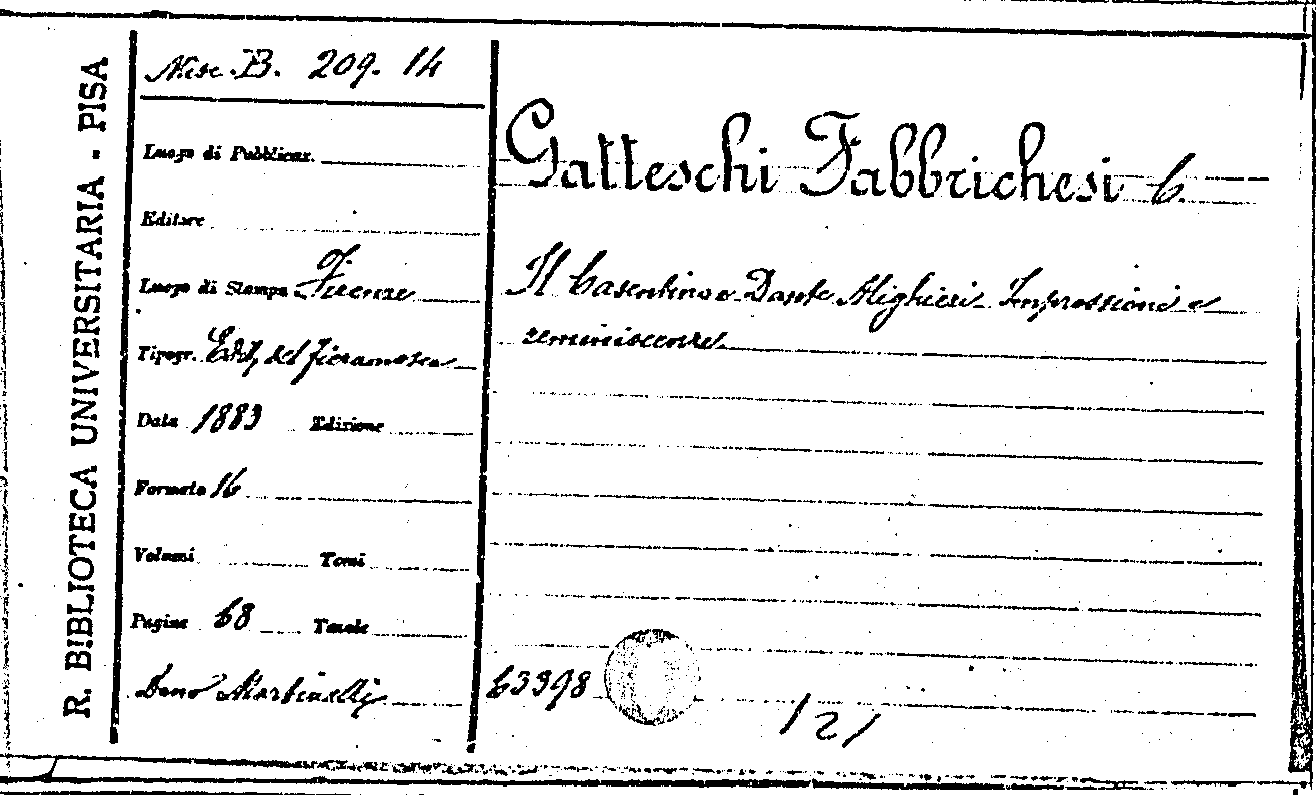 R. BIBLIOTECA UNIVERSITARIA - PISA
Misc. B. 209. 14
Luogo di Pubblicaz.
Editore
Luogo di Stampa Firenze
Tipogr. Edit. del Fieramosca
Data 1883 Edizione
Formato 16
Volumi Tomi
Pagine 68 Tavole
Dono Martinelli
Gatteschi Fabbrichesi C.
Il Casentino e Dante Alighieri. Impressioni e
reminiscenze
63398
121